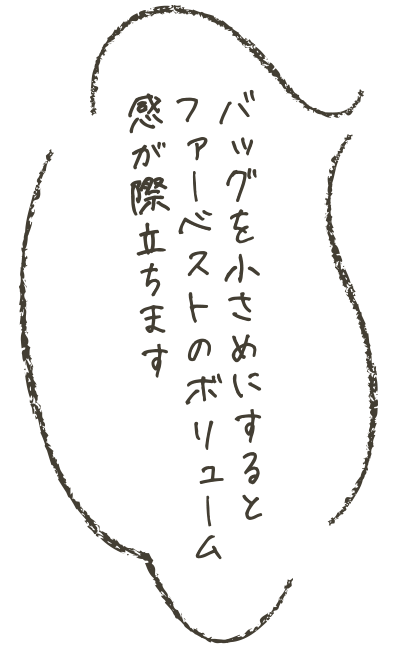 バッグを小さめにすると
ファーベストのボリューム
感が際立ちます